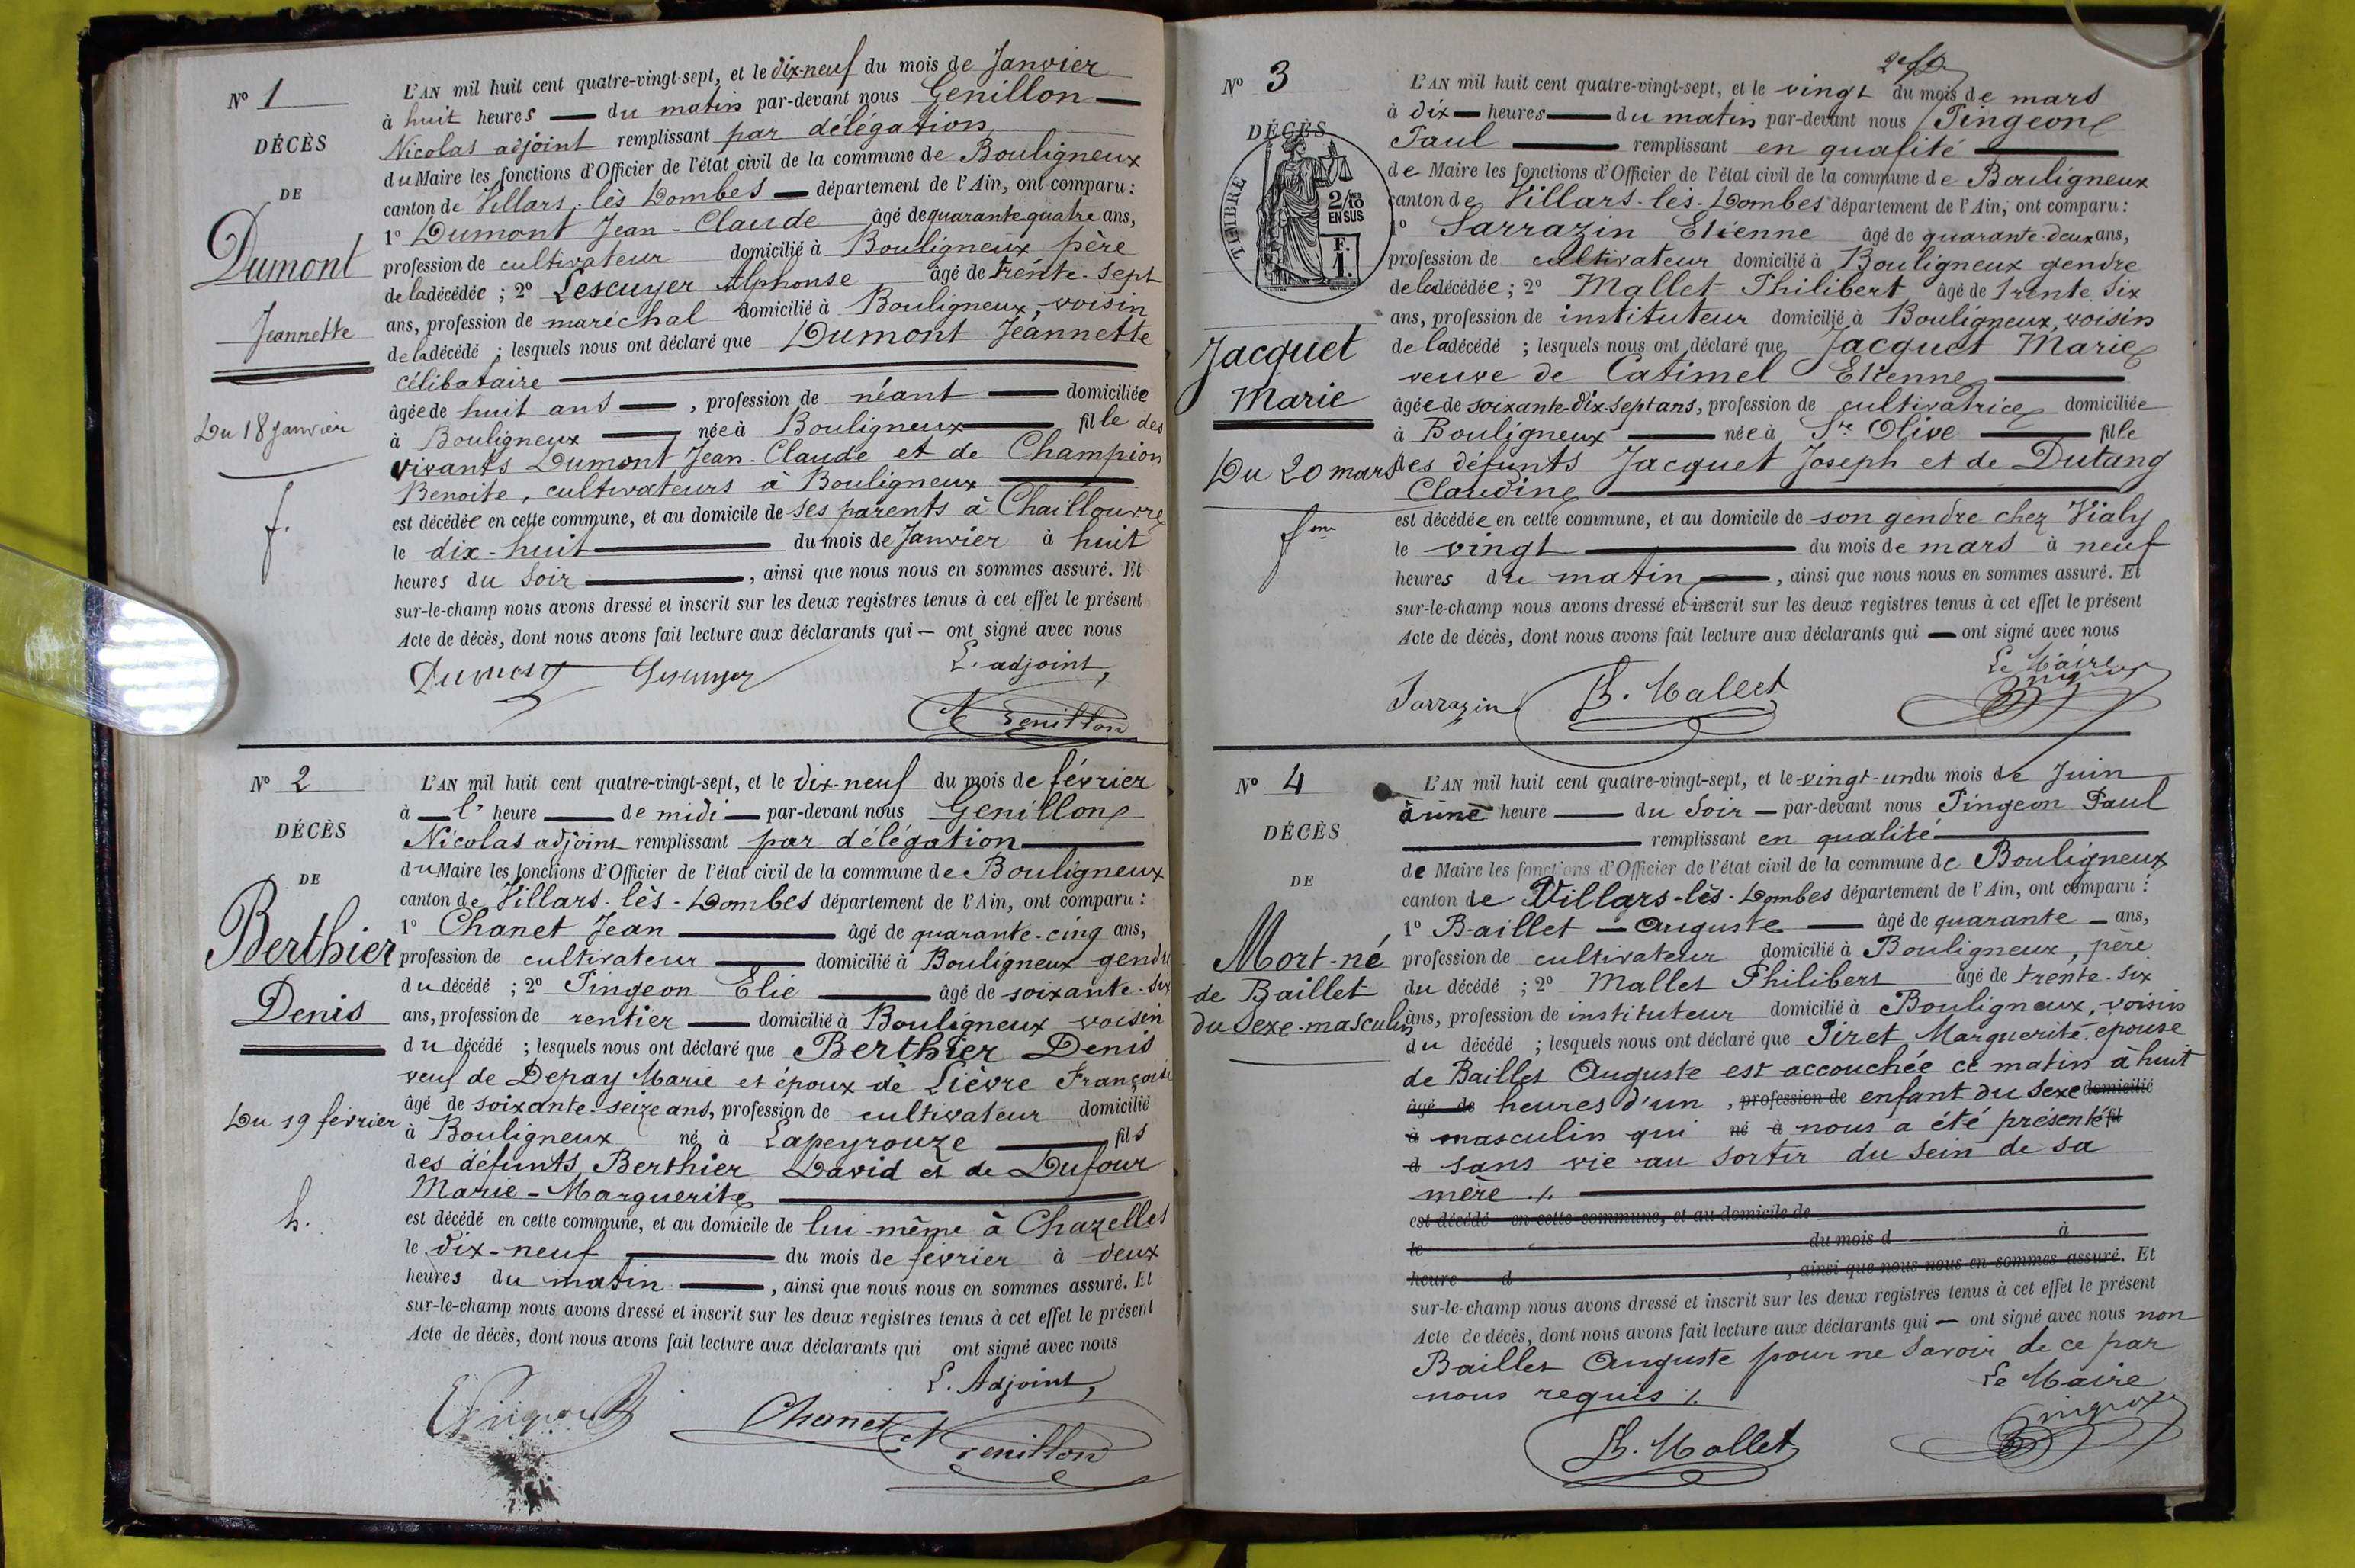 N° 1
DÉCÈS
DE
Dumont
Jeannette
Du 18 janvier
f.
L'AN mil huit cent quatre-vingt-sept, et le dix-neuf du mois de Janvier
à huit heures du matin par-devant nous Genillon
Nicolas adjoint remplissant par délégation
du Maire les fonctions d'Officier de l'état civil de la commune de Bouligneux
canton de Villars-lès-Dombes département de l'Ain, ont comparu :
1° Dumont Jean-Claude âgé de quarante quatre ans,
profession de cultivateur domicilié à Bouligneux père
de la décédée ; 2° Lescuyer Alphonse âgé de trente-sept
ans, profession de maréchal domicilié à Bouligneux, voisin
de la décédé ; lesquels nous ont déclaré que Dumont Jeannette
célibataire
âgée de huit ans , profession de néant domiciliée
à Bouligneux née à Bouligneux fille des
vivants Dumont Jean-Claude et de Champion
Benoite, cultivateurs à Bouligneux
est décédée en cette commune, et au domicile de ses parents à Chaillouvre
le dix-huit du mois de Janvier à huit
heures du soir , ainsi que nous nous en sommes assuré. Et
sur-le-champ nous avons dressé et inscrit sur les deux registres tenus à cet effet le présent
Acte de décès, dont nous avons fait lecture aux déclarants qui — ont signé avec nous
L'adjoint,
Dumont Lescuyer
N Genillon
N° 2
DÉCÈS
DE
Berthier
Denis
Du 19 février
h.
L'AN mil huit cent quatre-vingt-sept, et le dix-neuf du mois de février
à l' heure de midi par-devant nous Genillon
Nicolas adjoint remplissant par délégation
du Maire les fonctions d'Officier de l'état civil de la commune de Bouligneux
canton de Villars-lès-Dombes département de l'Ain, ont comparu :
1° Chanet Jean âgé de quarante-cinq ans,
profession de cultivateur domicilié à Bouligneux gendre
du décédé ; 2° Pingeon Elie âgé de soixante-six
ans, profession de rentier domicilié à Bouligneux voisin
du décédé ; lesquels nous ont déclaré que Berthier Denis
veuf de Depay Marie et époux de Lièvre Françoise
âgé de soixante-seize ans, profession de cultivateur domicilié
à Bouligneux né à Lapeyrouze fils
des défunts Berthier David et de Dufour
Marie-Marguerite
est décédé en cette commune, et au domicile de lui-même à Chazelles
le dix-neuf du mois de février à deux
heures du matin , ainsi que nous nous en sommes assuré. Et
sur-le-champ nous avons dressé et inscrit sur les deux registres tenus à cet effet le présent
Acte de décès, dont nous avons fait lecture aux déclarants qui ont signé avec nous
L'Adjoint,
E Pingeon Chanet N Genillon
N° 3
DÉCÈS
TIMBRE
2/10
EN SUS
F.
1.
Jacquet
Marie
Du 20 mars
fme
L'AN mil huit cent quatre-vingt-sept, et le vingt du mois de mars
à dix heures du matin par-devant nous Pingeon
Paul remplissant en qualité
de Maire les fonctions d'Officier de l'état civil de la commune de Bouligneux
canton de Villars-lès-Dombes département de l'Ain, ont comparu :
1° Sarrazin Etienne âgé de quarante-deux ans,
profession de cultivateur domicilié à Bouligneux gendre
de la décédée ; 2° Mallet Philibert âgé de trente six
ans, profession de instituteur domicilié à Bouligneux, voisin
de la décédé ; lesquels nous ont déclaré que Jacquet Marie
veuve de Catimel Etienne
âgée de soixante-dix-sept ans, profession de cultivatrice domiciliée
à Bouligneux née à Ste Olive fille
des défunts Jacquet Joseph et de Dutang
Claudine
est décédée en cette commune, et au domicile de son gendre chez Vialy
le vingt du mois de mars à neuf
heures du matin , ainsi que nous nous en sommes assuré. Et
sur-le-champ nous avons dressé et inscrit sur les deux registres tenus à cet effet le présent
Acte de décès, dont nous avons fait lecture aux déclarants qui — ont signé avec nous
Le Maire
Sarrazin Ph. Mallet Pingeon
N° 4
DÉCÈS
DE
Mort-né
de Baillet
du Sexe-masculin
L'AN mil huit cent quatre-vingt-sept, et le vingt-un du mois de Juin
à une heure du soir par-devant nous Pingeon Paul
remplissant en qualité
de Maire les fonctions d'Officier de l'état civil de la commune de Bouligneux
canton de Villars-lès-Dombes département de l'Ain, ont comparu :
1° Baillet Auguste âgé de quarante ans,
profession de cultivateur domicilié à Bouligneux, père
du décédé ; 2° Mallet Philibert âgé de trente-six
ans, profession de instituteur domicilié à Bouligneux, voisin
du décédé ; lesquels nous ont déclaré que Piret Marguerite épouse
de Baillet Auguste est accouchée ce matin à huit
âgé de heures d'un , profession de enfant du sexe domicilié
à masculin qui né à nous a été présenté fil
d sans vie au sortir du sein de sa
mère ./.
est décédé en cette commune, et au domicile de
le du mois d à
heure d , ainsi que nous nous en sommes assuré. Et
sur-le-champ nous avons dressé et inscrit sur les deux registres tenus à cet effet le présent
Acte de décès, dont nous avons fait lecture aux déclarants qui — ont signé avec nous non
Baillet Auguste pour ne savoir de ce par
nous requis ./.
Le Maire
Ph. Mallet Pingeon